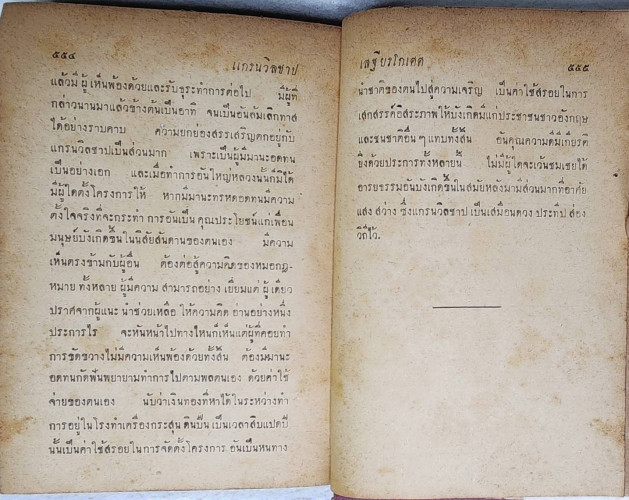 ๕๕๔
แกรนวิลชาป
แล้วมีผู้เห็นพ้องด้วยและรับธุระทำการต่อไป มีผู้ที่
กล่าวนามมาแล้วข้างต้นเป็นอาทิ จนเป็นอันล้มเลิกทาส
ได้อย่างราบคาบ ความยกยองสรรเสริญตกอยู่กับ
แกรนวิลชาปเป็นส่วนมาก เพราะเป็นผู้มีมานะอดทน
เป็นอย่างเอก และเมื่อทำการอันใหญ่หลวงนั้นก็มิได้
มีผู้ใดตั้งโครงการให้ หากมีมานะทรหดอดทนมีความ
ตั้งใจจริงที่จะกระทำ การอันเป็นคุณประโยชน์แก่เพื่อน
มนุษย์บังเกิดขึ้นในนิสัยสันดานของตนเอง มีความ
เห็นตรงข้ามกับผู้อื่น ต้องต่อสู้ความคิดของหมอกฎ-
หมายทั้งหลาย ผู้มีความสามารถอย่างเยี่ยมแต่ผู้เดียว
ปราศจากผู้แนะนำช่วยเหลือให้ความคิดอ่านอย่างหนึ่ง
ประการไร จะหันหน้าไปทางไหนก็เห็นแต่ผู้ที่คอยทำ
การขัดขวางไม่มีความเห็นพ้องด้วยทั้งสิ้น ต้องมีมานะ
อดทนกัดฟันพยายามทำการไปตามพลตนเอง ด้วยค่าใช้
จ่ายของตนเอง นับว่าเงินทองที่หาได้ในระหว่างทำ
การอยู่ในโรงทำเครื่องกระสุนดินปืนเป็นเวลาสิบแปดปี
นั้นเป็นค่าใช้สรอยในการจัดตั้งโครงการ อันเป็นหนทาง
เสฐียรโกเศศ
๕๕๕
นำชาติของตนไปสู่ความเจริญ เป็นค่าใช้สรอยในการ
เสกสรรค์อิสระภาพให้บังเกิดมีแก่ประชาชนชาวอังกฤษ
และชนชาติอื่นๆแทบทั้งสิ้น อันคุณความดีมีเกียรติ
ยิ่งด้วยประการทั้งหลายนี้ ไม่มีผู้ใดจะเว้นชมเชยได้
อารยธรรมอันบังเกิดขึ้นในสมัยหลังมามีส่วนมากที่อาศัย
แสงสว่าง ซึ่งแกรนวิลชาปเป็นเสมือนดวงประทีปส่อง
วิถีไว้.